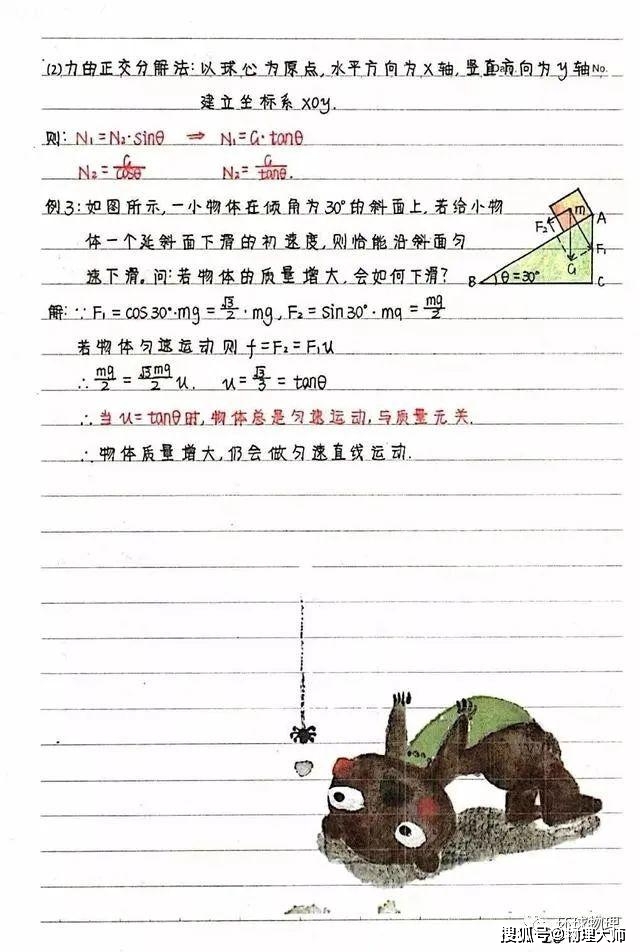 (2)力的正交分解法:以球心为原点,水平方向为x轴,竖直方向为y轴 No.
建立坐标系xoy.
则: N₁=N₂·sinθ ⇒ N₁=G·tanθ
N₂=G/cosθ N₂=G/tanθ.
例3:如图所示,一小物体在倾角为30°的斜面上,若给小物
体一个延斜面下滑的初速度,则恰能沿斜面匀
速下滑。问:若物体的质量增大,会如何下滑?
m
A
F₂
F₁
G
B
θ=30°
C
解:∵F₁=cos30°·mg=√3/2·mg,F₂=sin30°·mg=mg/2
若物体匀速运动则f=F₂=F₁u
∴mg/2=√3mg/2 u. u=√3/3=tanθ
∴当u=tanθ时,物体总是匀速运动,与质量无关.
∴物体质量增大,仍会做匀速直线运动.
环球物理
搜狐号@物理大师